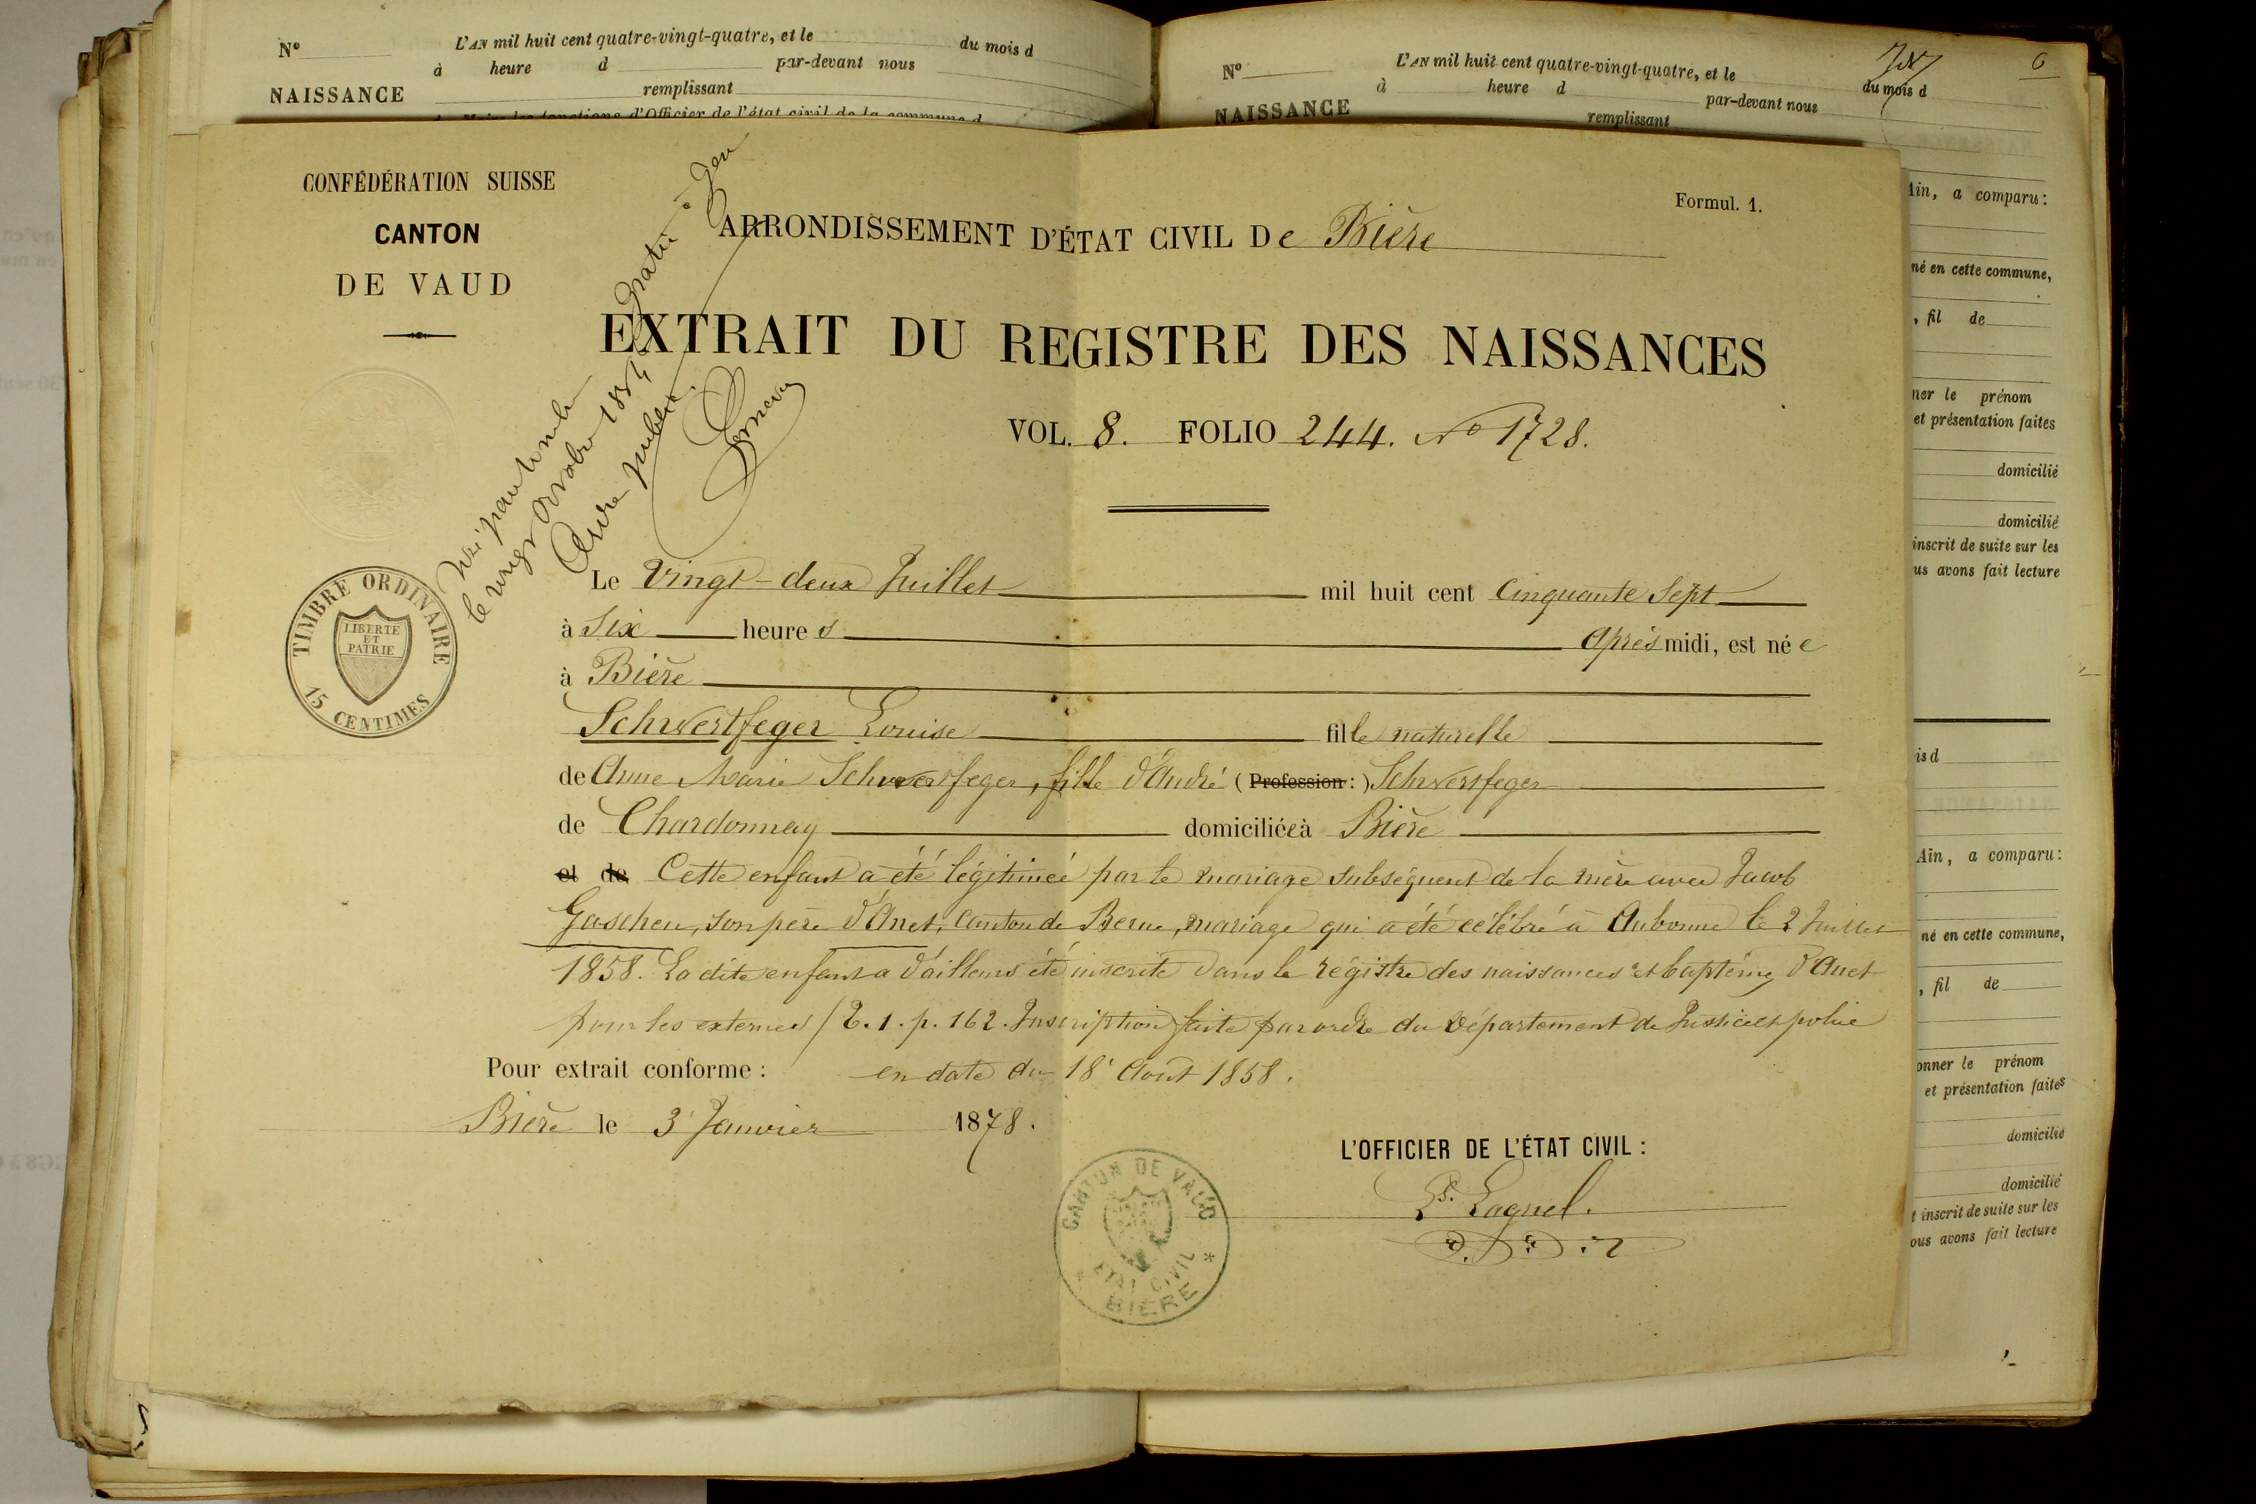 N°
L'AN mil huit cent quatre-vingt-quatre, et le
du mois d
à heure d par-devant nous
NAISSANCE
remplissant
N°
L'AN mil huit cent quatre-vingt-quatre, et le
du mois d
6
à heure d par-devant nous
NAISSANCE
remplissant
CONFÉDÉRATION SUISSE
CANTON
DE VAUD
Formul. 1.
ARRONDISSEMENT D'ÉTAT CIVIL De Bière
EXTRAIT DU REGISTRE DES NAISSANCES
VOL. 8. FOLIO 244. No 1728.
TIMBRE ORDINAIRE
LIBERTE
ET
PATRIE
15 CENTIMES
Le Vingt-deux Juillet mil huit cent Cinquante Sept
à Six heures Après midi, est née
à Bière
Schwertfeger Louise fille naturelle
de Anne Marie Schwertfeger, fille d'André (Profession:) Schwertfeger
de Chardonnay domiciliée à Bière
et de Cette enfant a été légitimée par le mariage subséquent de la mère avec Jacob
Gaschen, son père d'Anet, Canton de Berne, mariage qui a été célébré à Aubonne le 2 Juillet
1858. La dite enfant a d'ailleurs été inscrite dans le régistre des naissances et baptêmes d'Anet
pour les externes / T. 1. p. 162. Inscription faite par ordre du Département de Justice et police
Pour extrait conforme : en date du 18 Aout 1858.
Bière le 3 Janvier 1878.
L'OFFICIER DE L'ÉTAT CIVIL :
Ls. Lagnel.
CANTON DE VAUD
ETAT CIVIL
BIÈRE
Ain, a comparu:
né en cette commune,
, fil de
ner le prénom
et présentation faites
domicilié
domicilié
inscrit de suite sur les
us avons fait lecture
is d
Ain, a comparu:
né en cette commune,
, fil de
onner le prénom
et présentation faites
domicilié
domicilié
t inscrit de suite sur les
ous avons fait lecture